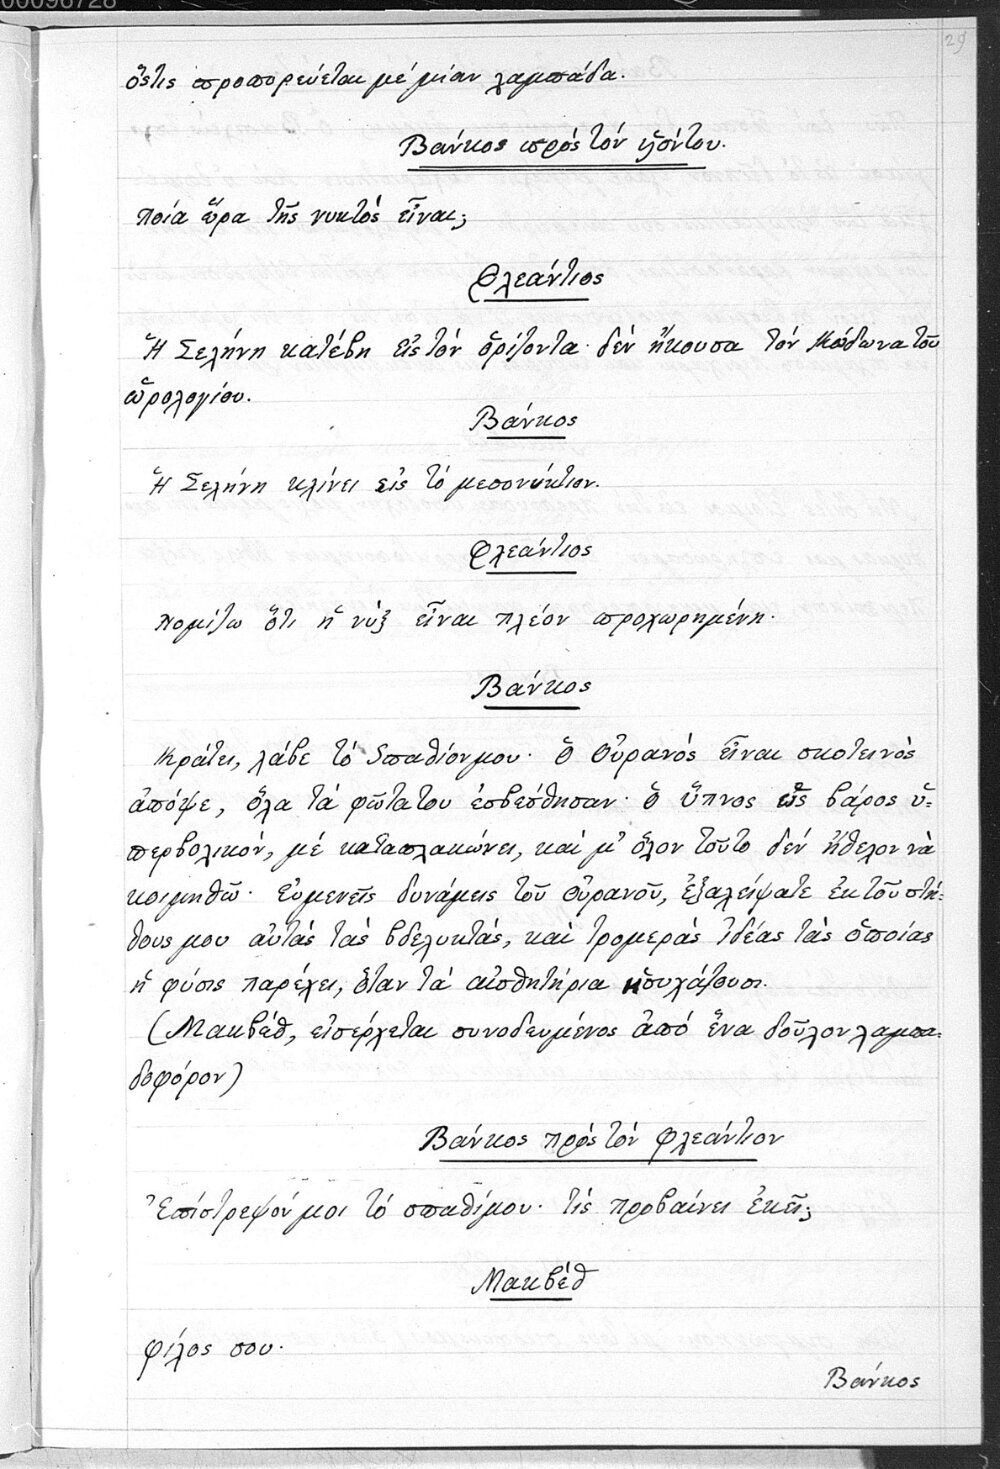 00096728
29
ὅςτις προπορεύεται μέ μίαν λαμπάδα.
Βάνκος πρός τόν υἱόν του.
Ποία ὥρα τῆς νυκτός εἶναι;
Φλεάντιος
Ἡ Σελήνη κατέβη εἰς τόν ὁρίζοντα· δέν ἤκουσα τόν κώδωνα τοῦ
ὡρολογίου.
Βάνκος
Ἡ Σελήνη κλίνει εἰς τό μεσονύκτιον.
Φλεάντιος
Νομίζω ὅτι ἡ νύξ εἶναι πλέον προχωρημένη.
Βάνκος
Κράτει, λάβε τό σπαθίον μου· ὁ Οὐρανός εἶναι σκοτεινός
ἀπόψε, ὅλα τά φῶτα του ἐσβέσθησαν· ὁ ὕπνος ὡς βάρος ὑ=
περβολικόν, μέ καταπλακώνει, καί μ' ὅλον τοῦτο δέν ἤθελον νά
κοιμηθῶ· Εὐμενεῖς δυνάμεις τοῦ Οὐρανοῦ, ἐξαλείψατε ἐκ τοῦ στή=
θους μου αὐτάς τάς βδελυκτάς, καί τρομεράς ἰδέας τάς ὁποίας
ἡ φύσις παρέχει, ὅταν τά αἰσθητήρια ἡσυχάζουσι.
(Μακβέθ, εἰσέρχεται συνοδευμένος ἀπό ἕνα δοῦλον λαμπα=
δοφόρον)
Βάνκος πρός τόν Φλεάντιον
Ἐπίστρεψόν μοι τό σπαθί μου· τίς προβαίνει ἐκεῖ;
Μακβέθ
Φίλος σου.
Βάνκος